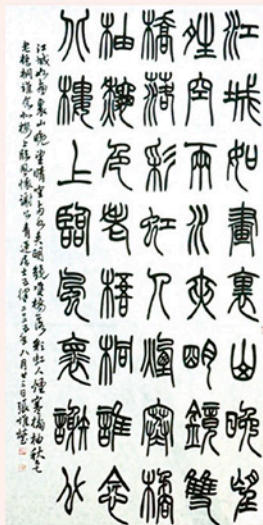 江城如畫裏山晚望
晴空兩水夾明鏡雙
橋落彩虹人煙寒橘
柚秋色老梧桐誰念
北樓上臨風褱謝公
江城如畫裏山晚望晴空兩水夾明鏡雙橋落彩虹人煙寒橘柚秋色
老梧桐誰念北樓上臨風懷謝公青蓮居士五律年八月廿三日張